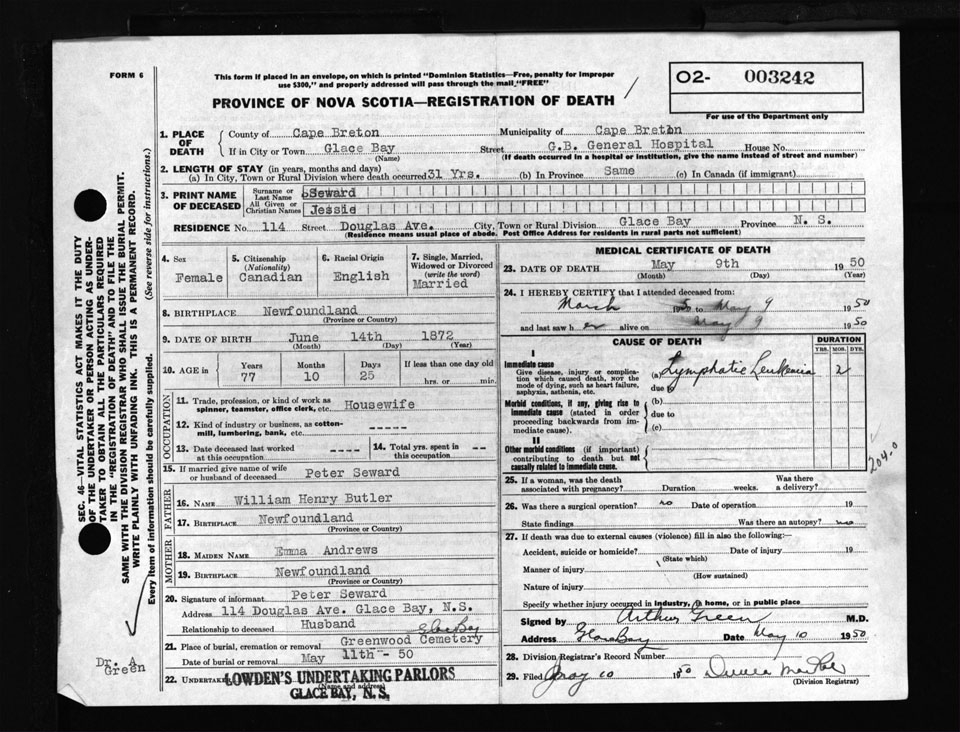 FORM 6
This form if placed in an envelope, on which is printed "Dominion Statistics—Free, penalty for improper
use $300," and properly addressed will pass through the mail "FREE"
O2- 003242
For use of the Department only
PROVINCE OF NOVA SCOTIA—REGISTRATION OF DEATH
1. PLACE OF DEATH
County of Cape Breton Municipality of Cape Breton
If in City or Town Glace Bay Street G.B. General Hospital House No.
(Name) (If death occurred in a hospital or institution, give the name instead of street and number)
2. LENGTH OF STAY (in years, months and days)
(a) In City, Town or Rural Division where death occurred 31 Yrs. (b) In Province Same (c) In Canada (if immigrant)
3. PRINT NAME OF DECEASED
Surname or Last Name Seward
All Given or Christian Names Jessie
RESIDENCE No. 114 Street Douglas Ave. City, Town or Rural Division Glace Bay Province N. S.
(Residence means usual place of abode. Post Office Address for residents in rural parts not sufficient)
4. Sex
Female
5. Citizenship
(Nationality)
Canadian
6. Racial Origin
English
7. Single, Married,
Widowed or Divorced
(write the word)
Married
8. BIRTHPLACE Newfoundland
(Province or Country)
9. DATE OF BIRTH June 14th 1872
(Month) (Day) (Year)
10. AGE in
Years Months Days If less than one day old
77 10 25 hrs. or min.
OCCUPATION
11. Trade, profession, or kind of work as
spinner, teamster, office clerk, etc. Housewife
12. Kind of industry or business, as cotton-
mill, lumbering, bank, etc. -----
13. Date deceased last worked
at this occupation ----
14. Total yrs. spent in
this occupation --
15. If married give name of wife
or husband of deceased Peter Seward
FATHER
16. NAME William Henry Butler
17. BIRTHPLACE Newfoundland
(Province or Country)
MOTHER
18. MAIDEN NAME Emma Andrews
19. BIRTHPLACE Newfoundland
(Province or Country)
20. Signature of informant Peter Seward
Address 114 Douglas Ave. Glace Bay, N.S.
Relationship to deceased Husband
Glace Bay
21. Place of burial, cremation or removal Greenwood Cemetery
Date of burial or removal May 11th - 50
22. Undertaker LOWDEN'S UNDERTAKING PARLORS
(Name and address)
GLACE BAY, N. S.
MEDICAL CERTIFICATE OF DEATH
23. DATE OF DEATH May 9th 1950
(Month) (Day) (Year)
24. I HEREBY CERTIFY that I attended deceased from:
March 1950 to May 9 1950
and last saw her alive on May 9 1950
CAUSE OF DEATH
DURATION
YRS. MOS. DYS.
I
Immediate cause
Give disease, injury or complica-
tion which caused death, NOT the
mode of dying, such as heart failure,
asphyxia, asthenia, etc.
(a) Lymphatic Leukemia 2
due to
Morbid conditions, if any, giving rise to
immediate cause (stated in order
proceeding backwards from im-
mediate cause).
(b)
due to
(c)
II
Other morbid conditions (if important)
contributing to death but not
causally related to immediate cause.
204.0
25. If a woman, was the death
associated with pregnancy? Duration weeks. Was there
a delivery?
26. Was there a surgical operation? no Date of operation 19
State findings Was there an autopsy? no
27. If death was due to external causes (violence) fill in also the following:—
Accident, suicide or homicide? Date of injury 19
(State which)
Manner of injury
(How sustained)
Nature of injury
Specify whether injury occurred in industry, in home, or in public place
Signed by Arthur Green M.D.
Address Glace Bay Date May 10 1950
28. Division Registrar's Record Number
29. Filed May 10 1950
(Division Registrar)
SEC. 46—VITAL STATISTICS ACT MAKES IT THE DUTY
OF THE UNDERTAKER OR PERSON ACTING AS UNDER-
TAKER TO OBTAIN ALL THE PARTICULARS REQUIRED
IN THE "REGISTRATION OF DEATH" AND TO FILE THE
SAME WITH THE DIVISION REGISTRAR WHO SHALL ISSUE THE BURIAL PERMIT.
WRITE PLAINLY WITH UNFADING INK. THIS IS A PERMANENT RECORD.
Every item of information should be carefully supplied. (See reverse side for instructions.)
Dr. A.
Green